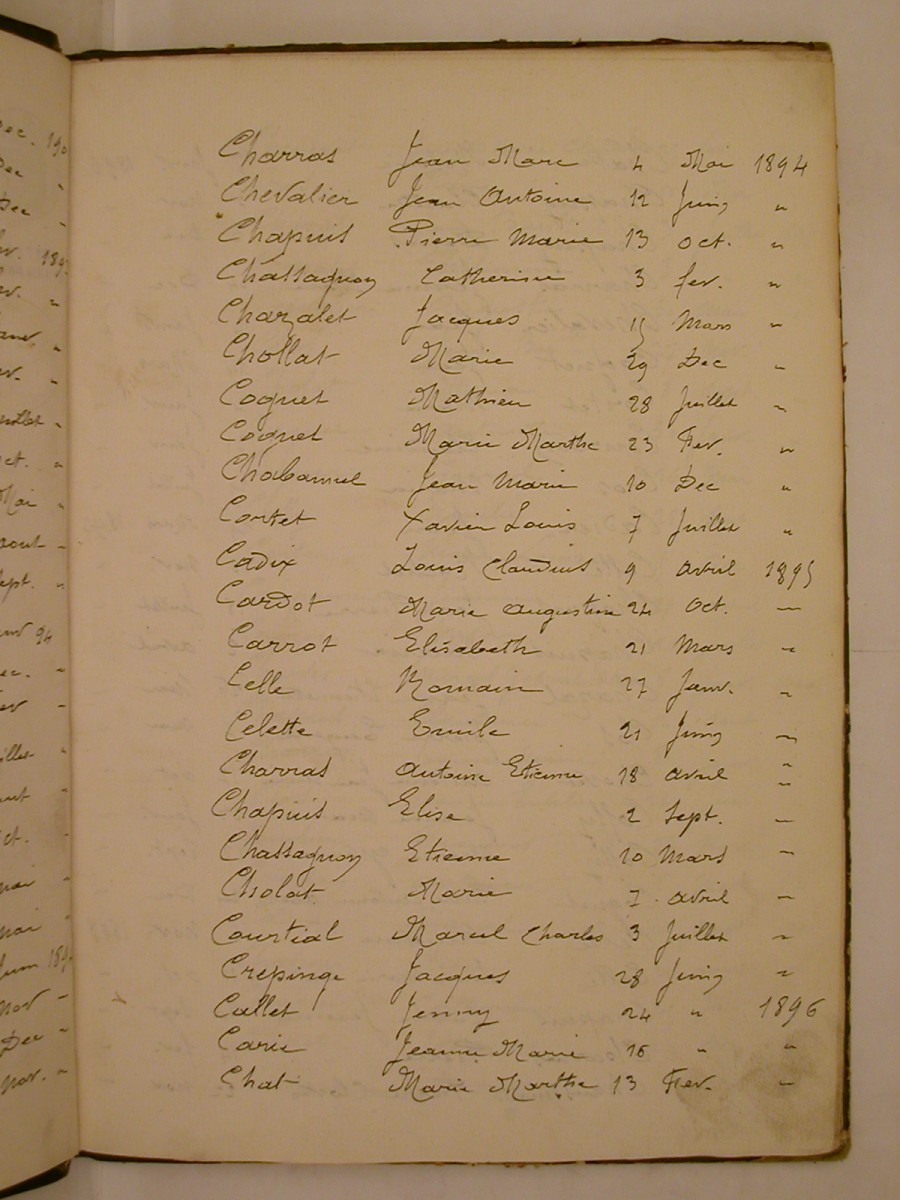 Charras Jean Marc 4 Mai 1894
Chevalier Jean Antoine 12 Juin "
Chapuis Pierre Marie 13 Oct. "
Chassagnon Catherine 3 fev. "
Charzalet Jacques 15 Mars "
Chollat Marie 29 Dec "
Coquet Mathieu 28 Juillet "
Coquet Marie Marthe 23 Fev. "
Chabannel Jean Marie 10 Dec "
Contet Xavier Louis 7 Juillet "
Cadix Louis Claudius 9 avril 1895
Cardot Marie Augustine 24 Oct. "
Carrot Elisabeth 21 Mars "
Celle Romain 27 Janv. "
Celette Emile 21 Juin "
Charras Antoine Etienne 18 avril "
Chapuis Elise 2 Sept. "
Chassagnon Etienne 10 Mars "
Cholat Marie 7 avril "
Courtial Marcel Charles 3 Juillet "
Crepinge Jacques 28 Juin "
Callet Jenny 24 " 1896
Carie Jeanne Marie 16 " "
Chat Marie Marthe 13 Fev. "